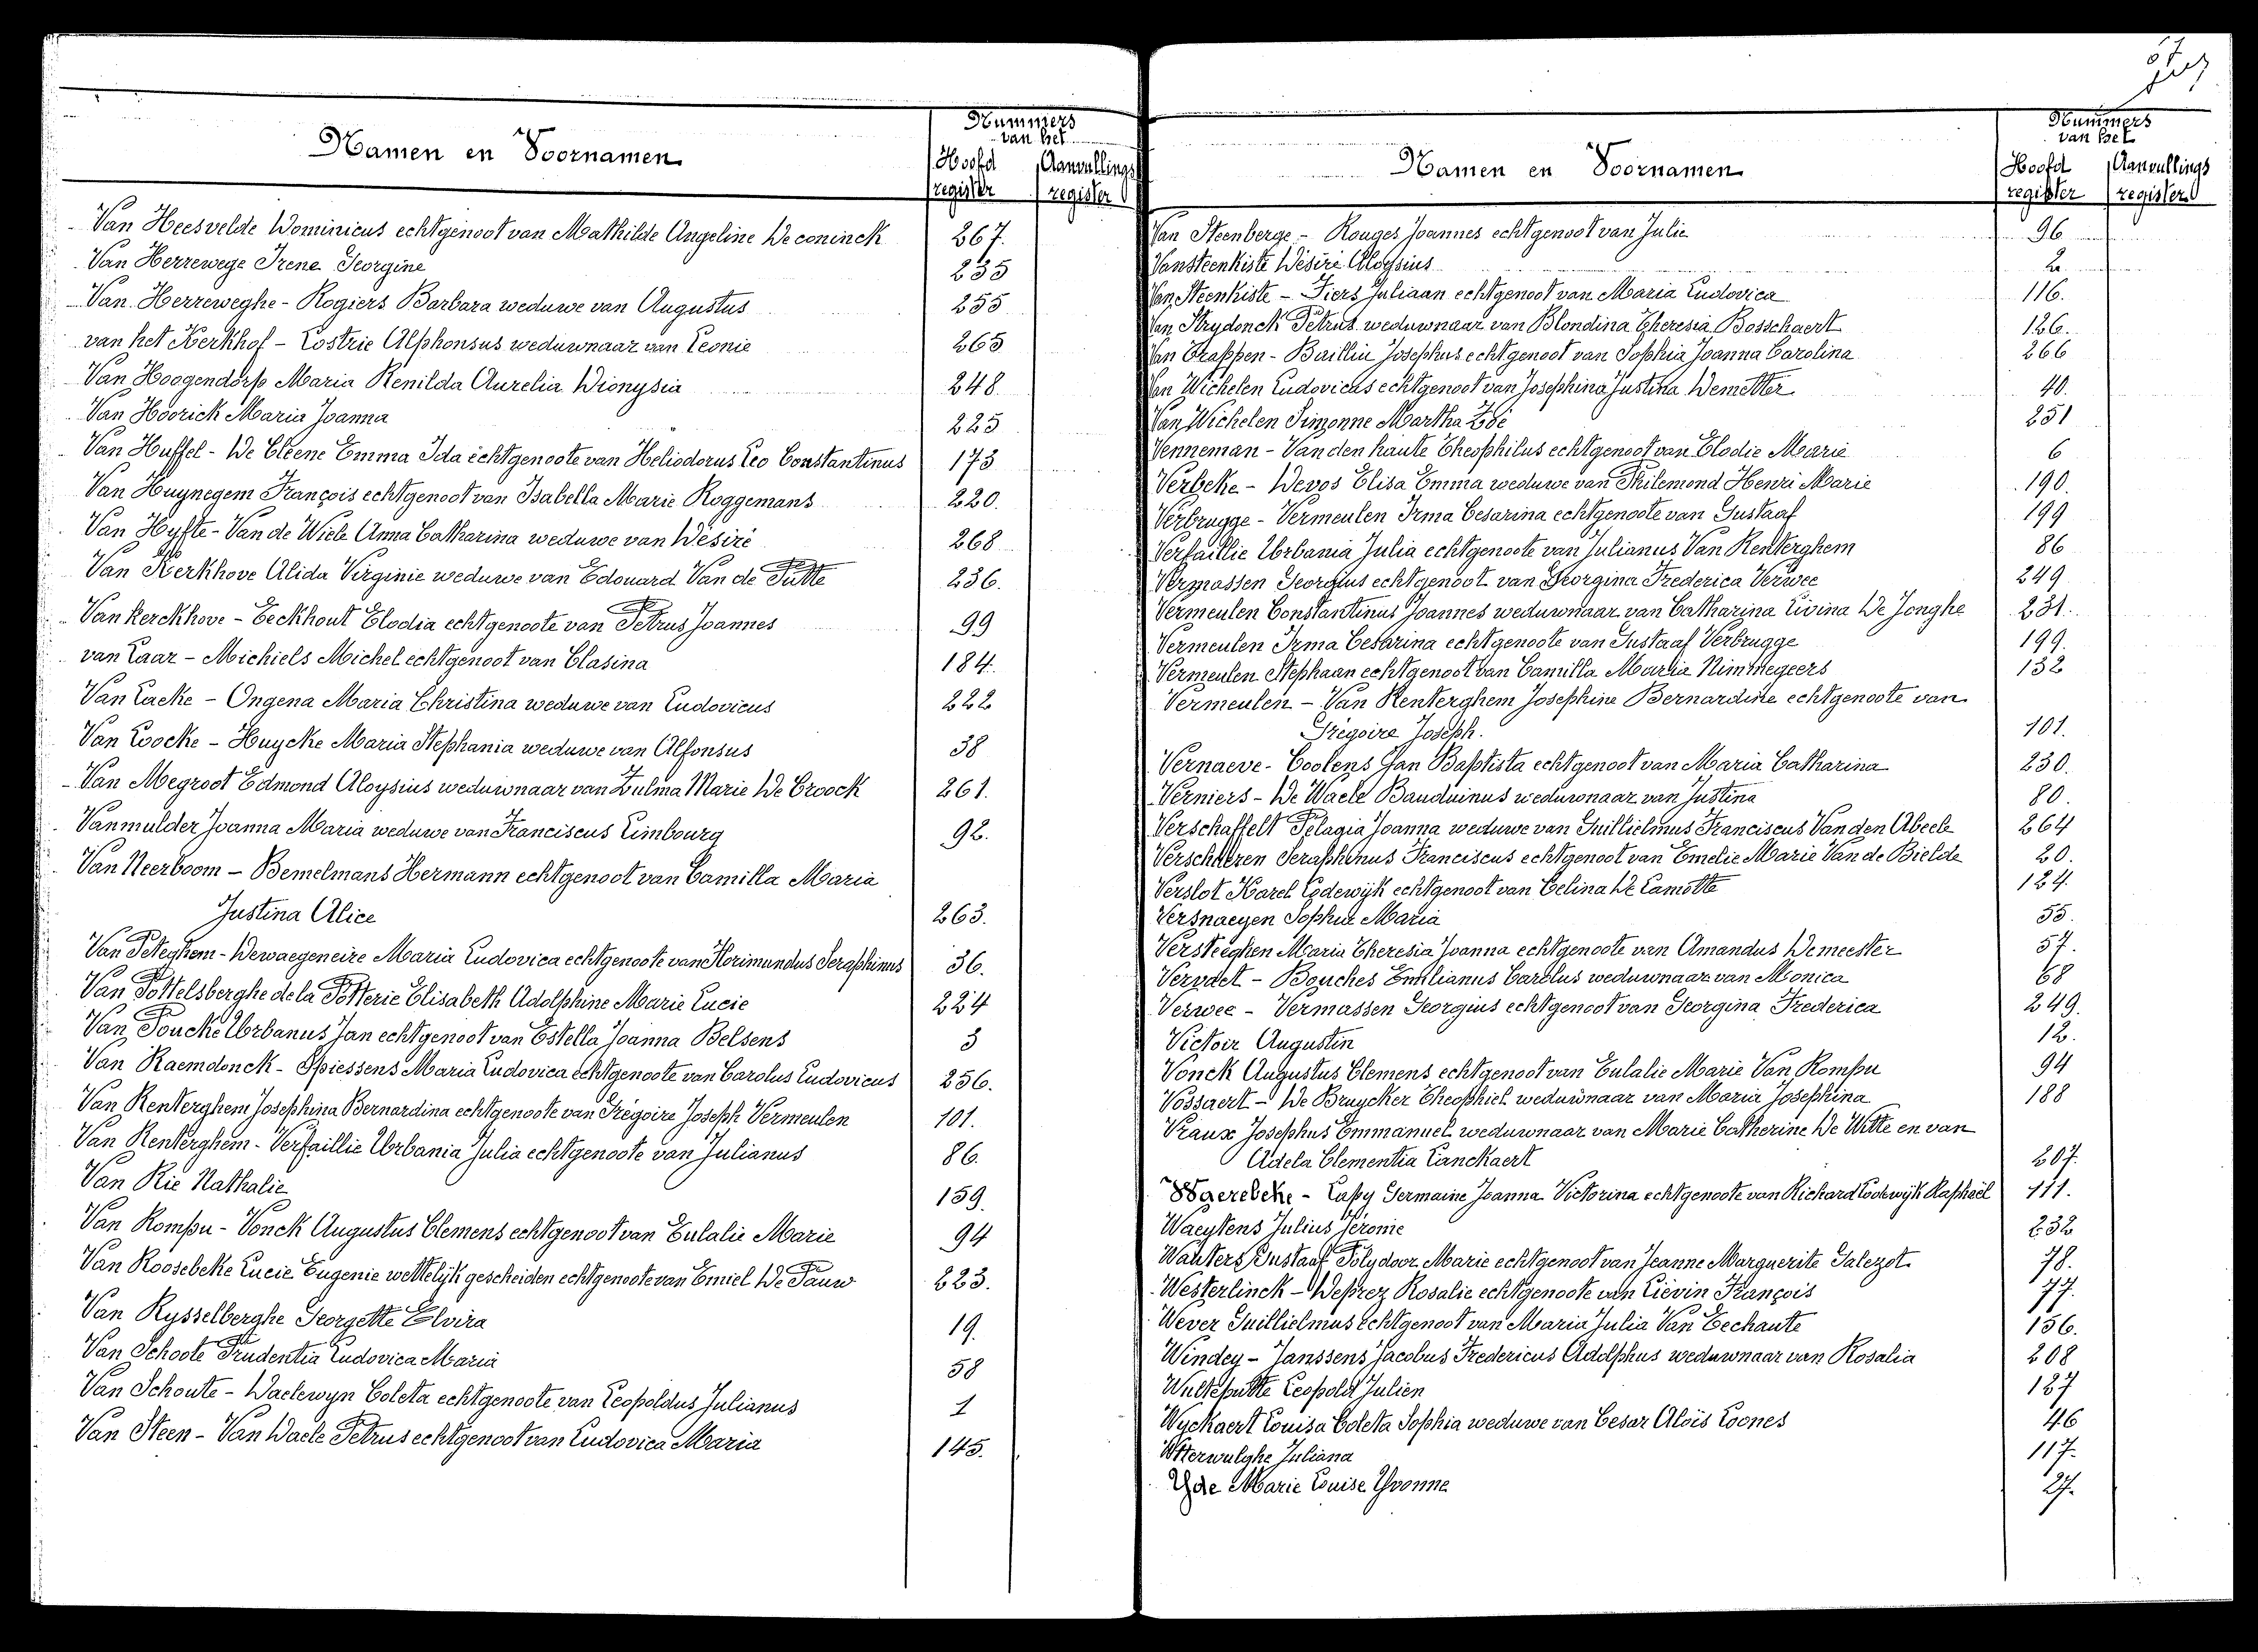 Namen en Voornamen
Nummers
van het
Hoofd register
Aanvullings register
Van Heesvelde Dominicus echtgenoot van Mathilde Angeline De coninck 267.
Van Herrewege Irene Georgine 235
Van Herreweghe - Rogiers Barbara weduwe van Augustus 255
van het Kerkhof - Lostrie Alphonsus weduwnaar van Leonie 265
Van Hoogendorp Maria Renilda Aurelia Dionysia 248
Van Hoorick Maria Joanna 225
Van Huffel - De Cleene Emma Ida echtgenoote van Heliodorus Leo Constantinus 173
Van Huynegem François echtgenoot van Isabella Marie Roggemans 220.
Van Hyfte - Van de Wiele Anna Catharina weduwe van Désiré 268
Van Kerkhove Alida Virginie weduwe van Edouard Van de Putte 236.
Van kerckhove - Eeckhout Elodia echtgenoote van Petrus Joannes 99
van Laar - Michiels Michel echtgenoot van Clasina 184.
Van Lacke - Ongena Maria Christina weduwe van Ludovicus 222
Van Loocke - Huycke Maria Stephania weduwe van Alfonsus 38
Van Megroot Edmond Aloysius weduwnaar van Zulma Marie De Croock 261.
Vanmulder Joanna Maria weduwe van Franciscus Limbourg 92.
Van Neerboom - Bemelmans Hermann echtgenoot van Camilla Maria
Justina Alice 263.
Van Peteghem - Dewaegeneire Maria Ludovica echtgenoote van Florimundus Seraphinus 36.
Van Pottelsberghe de la Potterie Elisabeth Adolphine Marie Lucie 224
Van Poucke Urbanus Jan echtgenoot van Estella Joanna Belsens 3
Van Raemdonck - Spiessens Maria Ludovica echtgenoote van Carolus Ludovicus 256.
Van Renterghem Josephina Bernardina echtgenoote van Grégoire Joseph Vermeulen 101.
Van Renterghem - Verfaillie Urbania Julia echtgenoote van Julianus 86.
Van Rie Nathalie 159.
Van Rompu - Vonck Augustus Clemens echtgenoot van Eulalie Marie 94
Van Roosebeke Lucie Eugenie wettelijk gescheiden echtgenoote van Emiel De Pauw 223.
Van Rysselberghe Georgette Elvira 19.
Van Schoote Prudentia Ludovica Maria 58
Van Schoute - Daelewyn Coleta echtgenoote van Leopoldus Julianus 1
Van Steen - Van Daele Petrus echtgenoot van Ludovica Maria 145.
Namen en Voornamen
Nummers
van het
Hoofd register
Aanvullings register
Van Steenberge - Rouges Joannes echtgenoot van Julie 96
Vansteenkiste Désiré Aloysius 2
Van Steenkiste - Fiers Juliaan echtgenoot van Maria Ludovica 116.
Van Strydonck Petrus weduwnaar van Blondina Theresia Bosschaert 126.
Van Trappen - Bailliu Josephus echtgenoot van Sophia Joanna Carolina 266
Van Wichelen Ludovicus echtgenoot van Josephina Justina Demetter 40.
Van Wichelen Simonne Martha Zoé 251
Venneman - Van den haute Theophilus echtgenoot van Elodie Marie 6
Verbeke - Devos Elisa Emma weduwe van Philemond Henri Marie 190.
Verbrugge - Vermeulen Irma Cesarina echtgenoote van Gustaaf 199
Verfaillie Urbania Julia echtgenoote van Julianus Van Renterghem 86
Vermassen Georgius echtgenoot van Georgina Frederica Verwee 249
Vermeulen Constantinus Joannes weduwnaar van Catharina Livina De Jonghe 231.
Vermeulen Irma Cesarina echtgenoote van Gustaaf Verbrugge 199.
Vermeulen Stephaan echtgenoot van Camilla Maria Nimmegeers 132
Vermeulen - Van Renterghem Josephine Bernardine echtgenoote van
Grégoire Joseph. 101.
Vernaeve - Coolens Jan Baptista echtgenoot van Maria Catharina 230.
Verniers - De Waele Bauduinus weduwnaar van Justina 80.
Verschaffelt Pelagia Joanna weduwe van Guillielmus Franciscus Van den Abeele 264
Verschueren Seraphinus Franciscus echtgenoot van Emelie Marie Van de Bielde 20.
Verslot Karel Lodewijk echtgenoot van Celina De Lamotte 124.
Versnaeyen Sophie Maria 55.
Versteeghen Maria Theresia Joanna echtgenoote van Amandus Demeester 57.
Vervaet - Bouches Emilianus Carolus weduwnaar van Monica 68
Verwee - Vermassen Georgius echtgenoot van Georgina Frederica 249.
Victoir Augustin 12.
Vonck Augustus Clemens echtgenoot van Eulalie Marie Van Rompu 94
Vossaert - De Bruycker Theophiel weduwnaar van Maria Josephina 188
Vraux Josephus Emmanuel weduwnaar van Marie Catherine De Witte en van
Adela Clementia Lanckaert 207.
Waerebeke - Lapy Germaine Joanna Victorina echtgenoote van Richard Lodewijk Raphaël 111.
Waeytens Julius Jérome 232
Wauters Gustaaf Polydoor Marie echtgenoot van Jeanne Marguerite Galezot 78.
Westerlinck - Deprez Rosalie echtgenoote van Liévin François 77.
Wever Guillielmus echtgenoot van Maria Julia Van Eechaute 156.
Windey - Janssens Jacobus Fredericus Adolphus weduwnaar van Rosalia 208
Wulteputte Leopold Julien 187
Wyckaert Louisa Coleta Sophia weduwe van Cesar Aloïs Loones 46
Wtterwulghe Juliana 117.
Yde Marie Louise Yvonne 27.